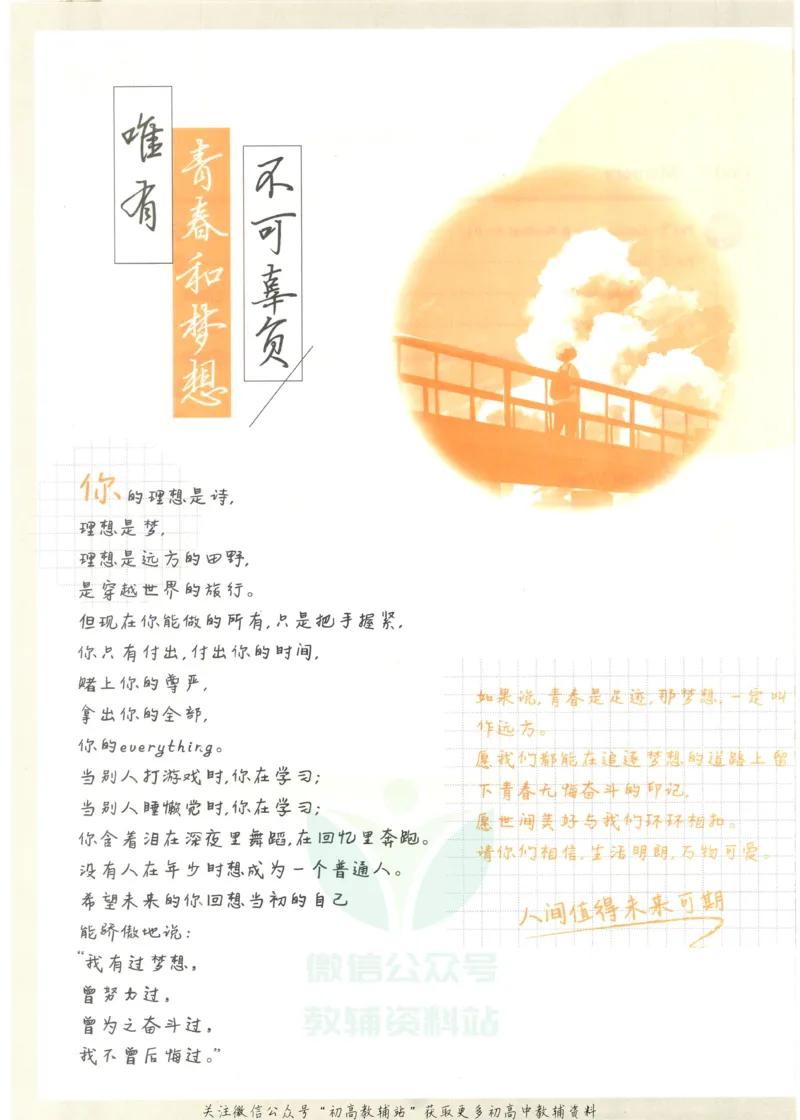 唯有
青春和梦想
不可辜负
你的理想是诗,
理想是梦,
理想是远方的田野,
是穿越世界的旅行。
但现在你能做的所有,只是把手握紧,
你只有付出,付出你的时间,
赌上你的尊严,
拿出你的全部,
你的everything。
当别人打游戏时,你在学习;
当别人睡懒觉时,你在学习;
你含着泪在深夜里舞蹈,在回忆里奔跑。
没有人在年少时想成为一个普通人。
希望未来的你回想当初的自己
能骄傲地说:
“我有过梦想,
曾努力过,
曾为之奋斗过,
我不曾后悔过。”
如果说,青春是足迹,那梦想,一定叫
作远方。
愿我们都能在追逐梦想的道路上留
下青春无悔奋斗的印记,
愿世间美好与我们环环相扣。
请你们相信,生活明朗,万物可爱。
人间值得未来可期
微信公众号
教辅资料站
关注微信公众号“初高教辅站”获取更多初高中教辅资料